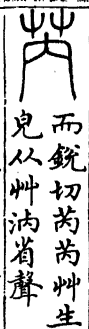 芮
而銳切芮芮艸生
皃从艸汭省聲